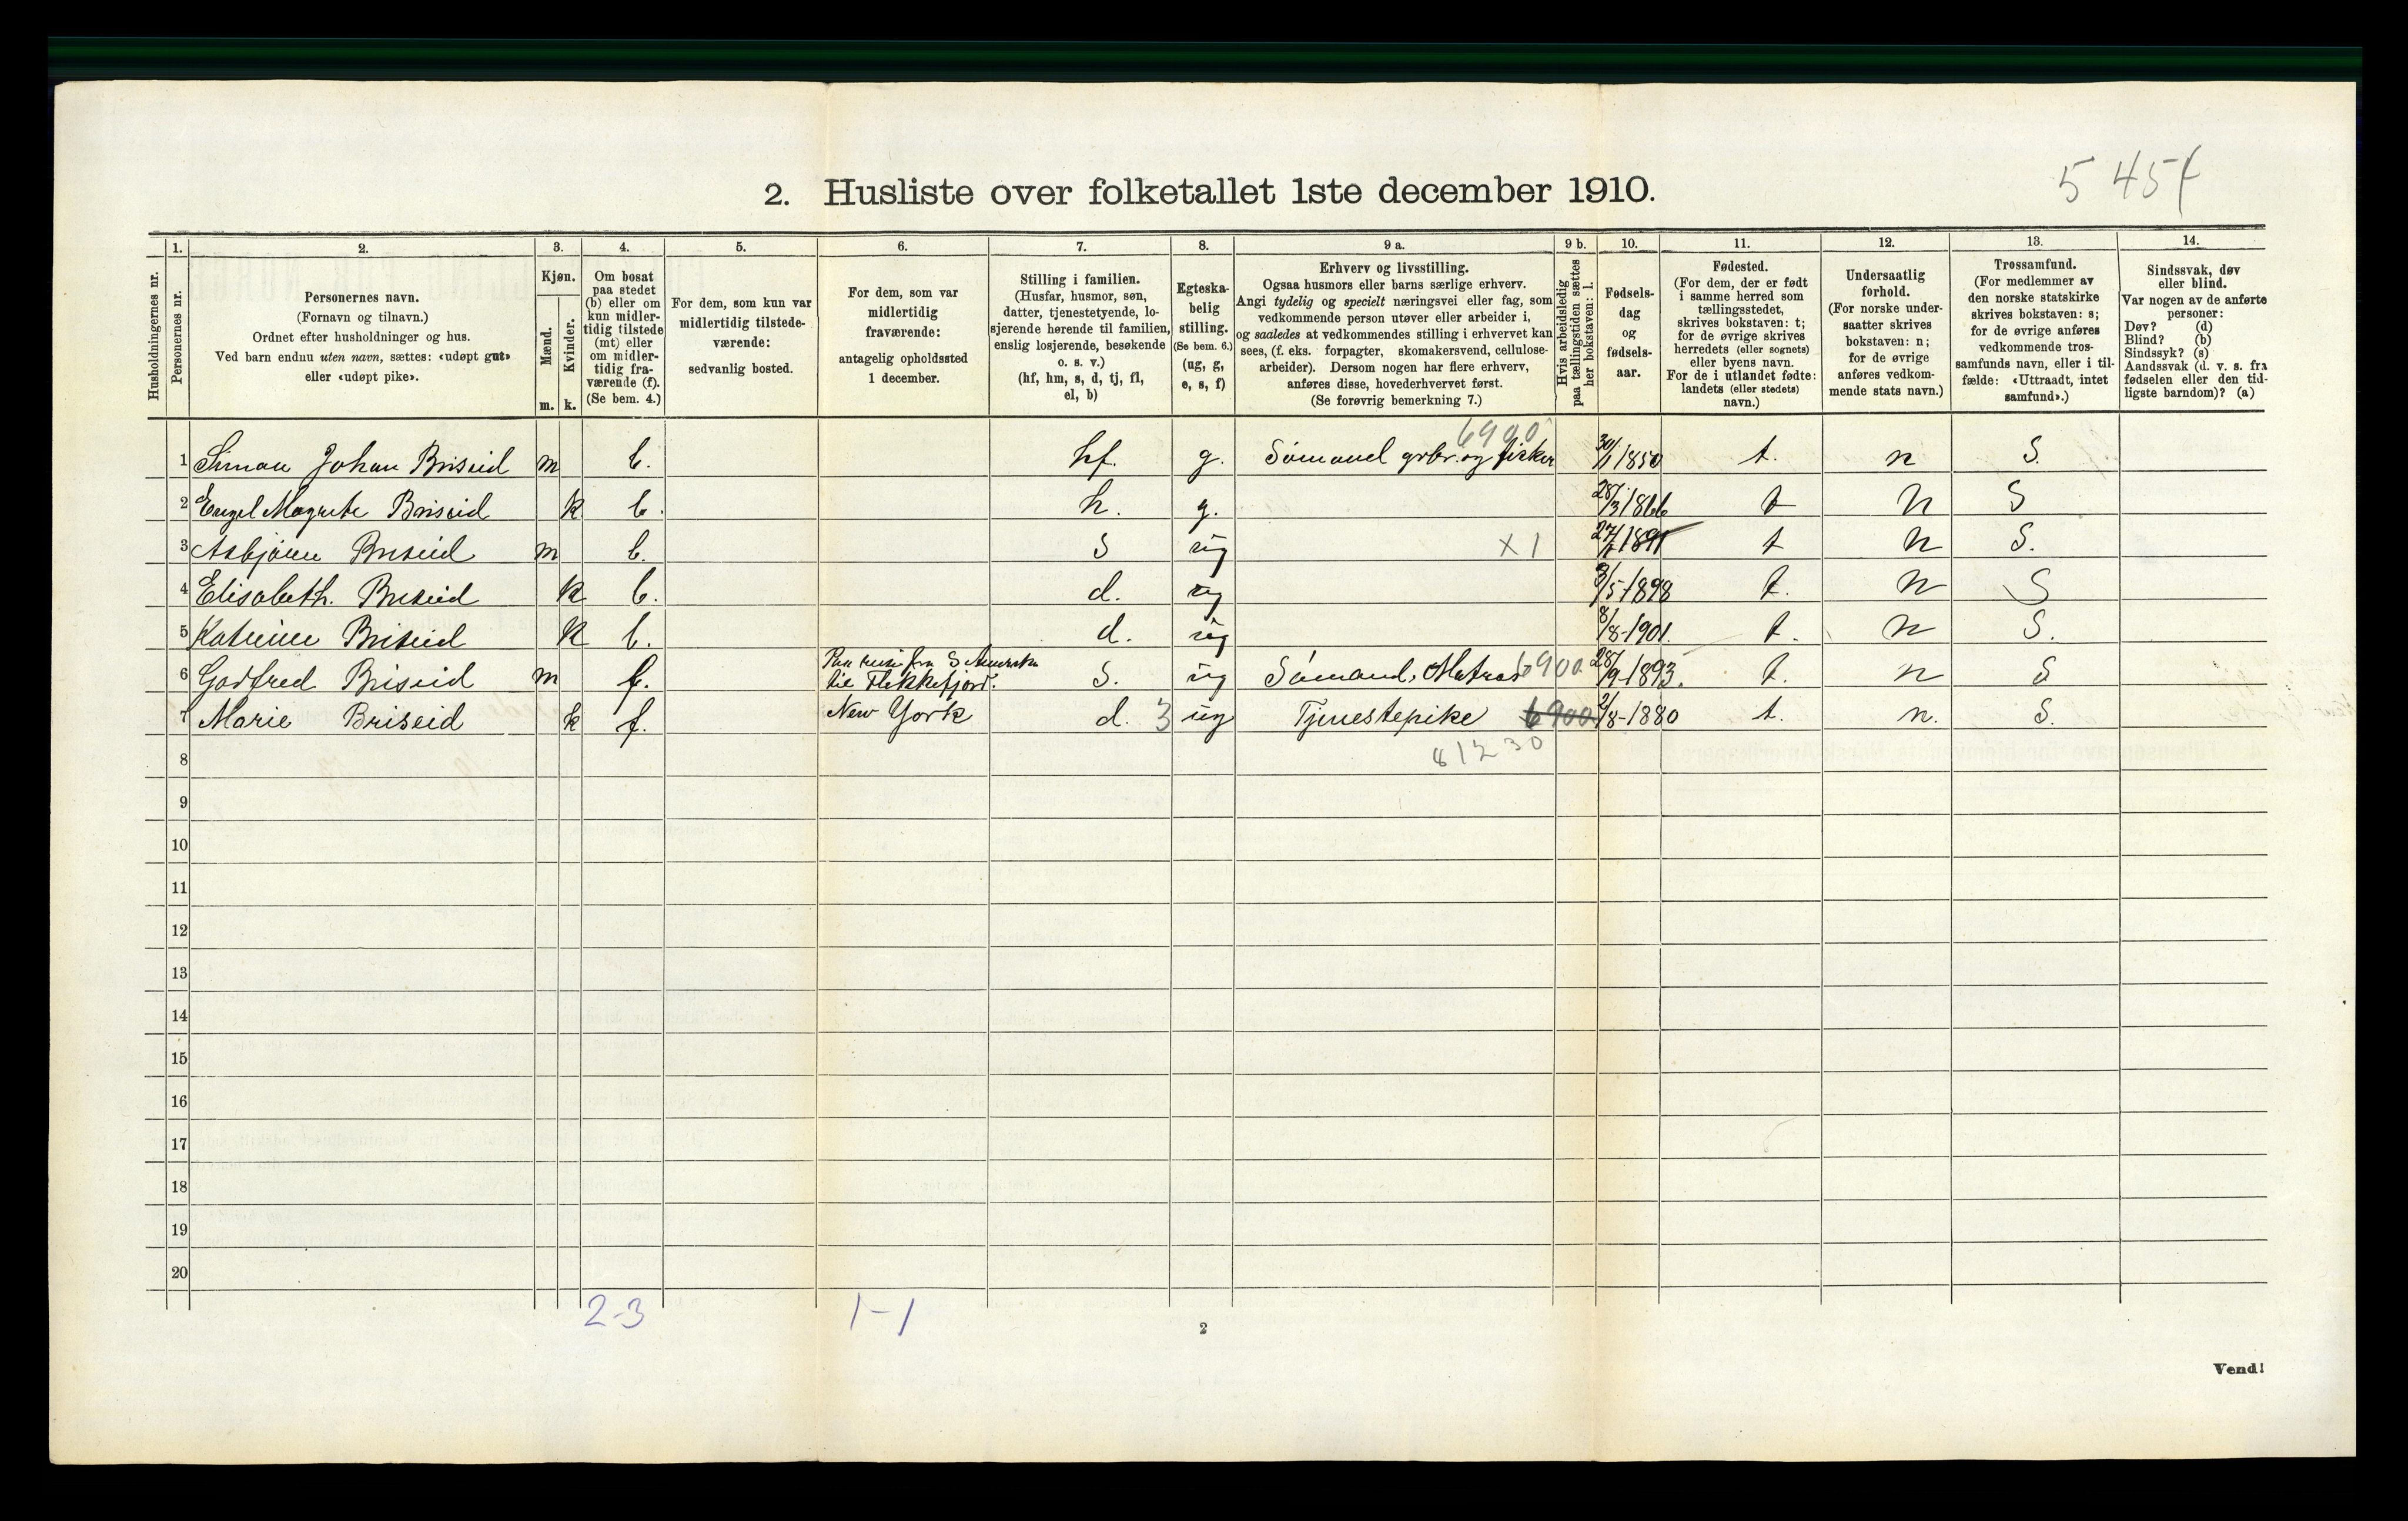 5 45
2. Husliste over folketallet 1ste december 1910.
Husholdningernes nr.
1.
Personernes nr.
2.
Personernes navn.
(Fornavn og tilnavn.)
Ordnet efter husholdninger og hus.
Ved barn endnu uten navn, sættes: «udøpt gut»
eller «udøpt pike».
3.
Kjøn.
Mænd.
m.
Kvinder.
k.
4.
Om bosat
paa stedet
(b) eller om
kun midler-
tidig tilstede
(mt) eller
om midler-
tidig fra-
værende (f).
(Se bem. 4.)
5.
For dem, som kun var
midlertidig tilstede-
værende:
sedvanlig bosted.
6.
For dem, som var
midlertidig
fraværende:
antagelig opholdssted
1 december.
7.
Stilling i familien.
(Husfar, husmor, søn,
datter, tjenestetyende, lo-
sjerende hørende til familien,
enslig losjerende, besøkende
o. s. v.)
(hf, hm, s, d, tj, fl,
el, b)
8.
Egteska-
belig
stilling.
(Se bem. 6.)
(ug, g,
e, s, f)
9 a.
Erhverv og livsstilling.
Ogsaa husmors eller barns særlige erhverv.
Angi tydelig og specielt næringsvei eller fag, som
vedkommende person utøver eller arbeider i,
og saaledes at vedkommendes stilling i erhvervet kan
sees, (f. eks. forpagter, skomakersvend, cellulose-
arbeider). Dersom nogen har flere erhverv,
anføres disse, hovederhvervet først.
(Se forøvrig bemerkning 7.)
9 b.
Hvis arbeidsledig
paa tællingstiden sættes
her bokstaven: l.
10.
Fødsels-
dag
og
fødsels-
aar.
11.
Fødested.
(For dem, der er født
i samme herred som
tællingsstedet,
skrives bokstaven: t;
for de øvrige skrives
herredets (eller sognets)
eller byens navn.
For de i utlandet fødte:
landets (eller stedets)
navn.)
12.
Undersaatlig
forhold.
(For norske under-
saatter skrives
bokstaven: n;
for de øvrige
anføres vedkom-
mende stats navn.)
13.
Trossamfund.
(For medlemmer av
den norske statskirke
skrives bokstaven: s;
for de øvrige anføres
vedkommende tros-
samfunds navn, eller i til-
fælde: «Uttraadt, intet
samfund».)
14.
Sindssvak, døv
eller blind.
Var nogen av de anførte
personer:
Døv? (d)
Blind? (b)
Sindssyk? (s)
Aandssvak (d. v. s. fra
fødselen eller den tid-
ligste barndom)? (a)
6900
1 Simon Johan Briseid m b. hf. g. Sømand grbr. og fisker 30/1 1850 t. n S.
2 Engel Magrete Briseid k b. h. g. 28/3 1866 t n S
3 Asbjørn Briseid m b. S ug x 1 1891 t n S.
4 Elisabeth. Briseid k b. d. ug 3/5-1898 t. n S
5 Katrine Briseid k b. d. ug 8/8-1901. t. n S.
6 Godfred Briseid m f. Paa reise fra S Amerika
til Flekkefjord. S. ug Sømand, Matros 6900 28/9-1893. t. n S
7 Marie Briseid k f. New York d. 3 ug Tjenestepike 6900 2/8-1880 t. n. S.
81230
8
9
10
11
12
13
14
15
16
17
18
19
20
2-3 1-1
2
Vend!